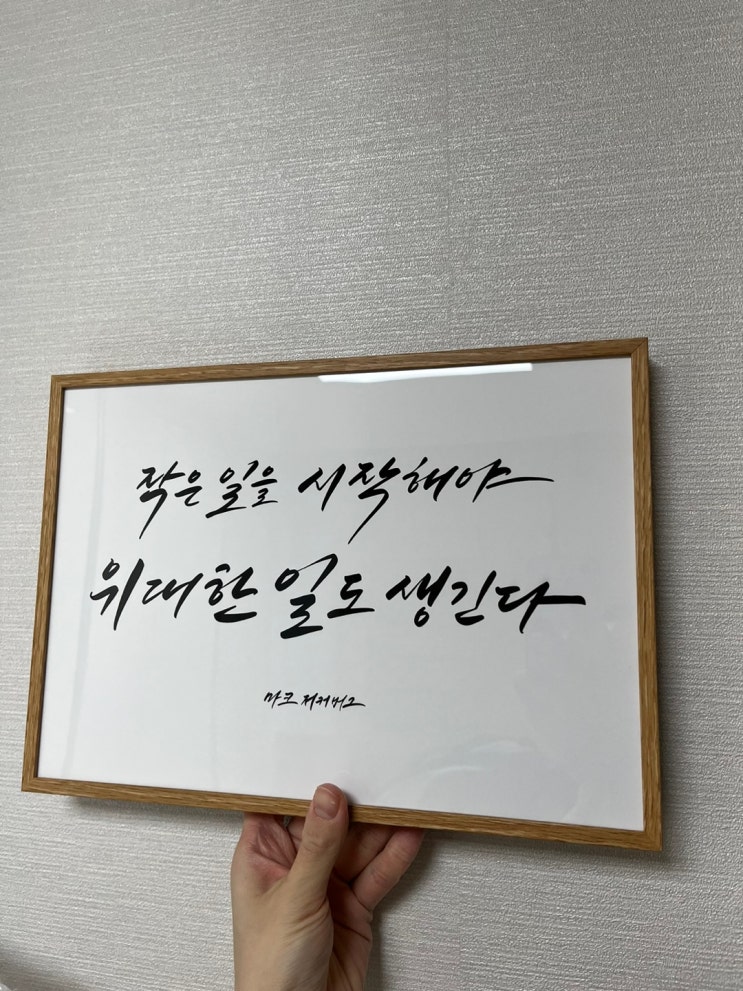 작은 일을 시작해야
위대한 일도 생긴다
마크 저커버그